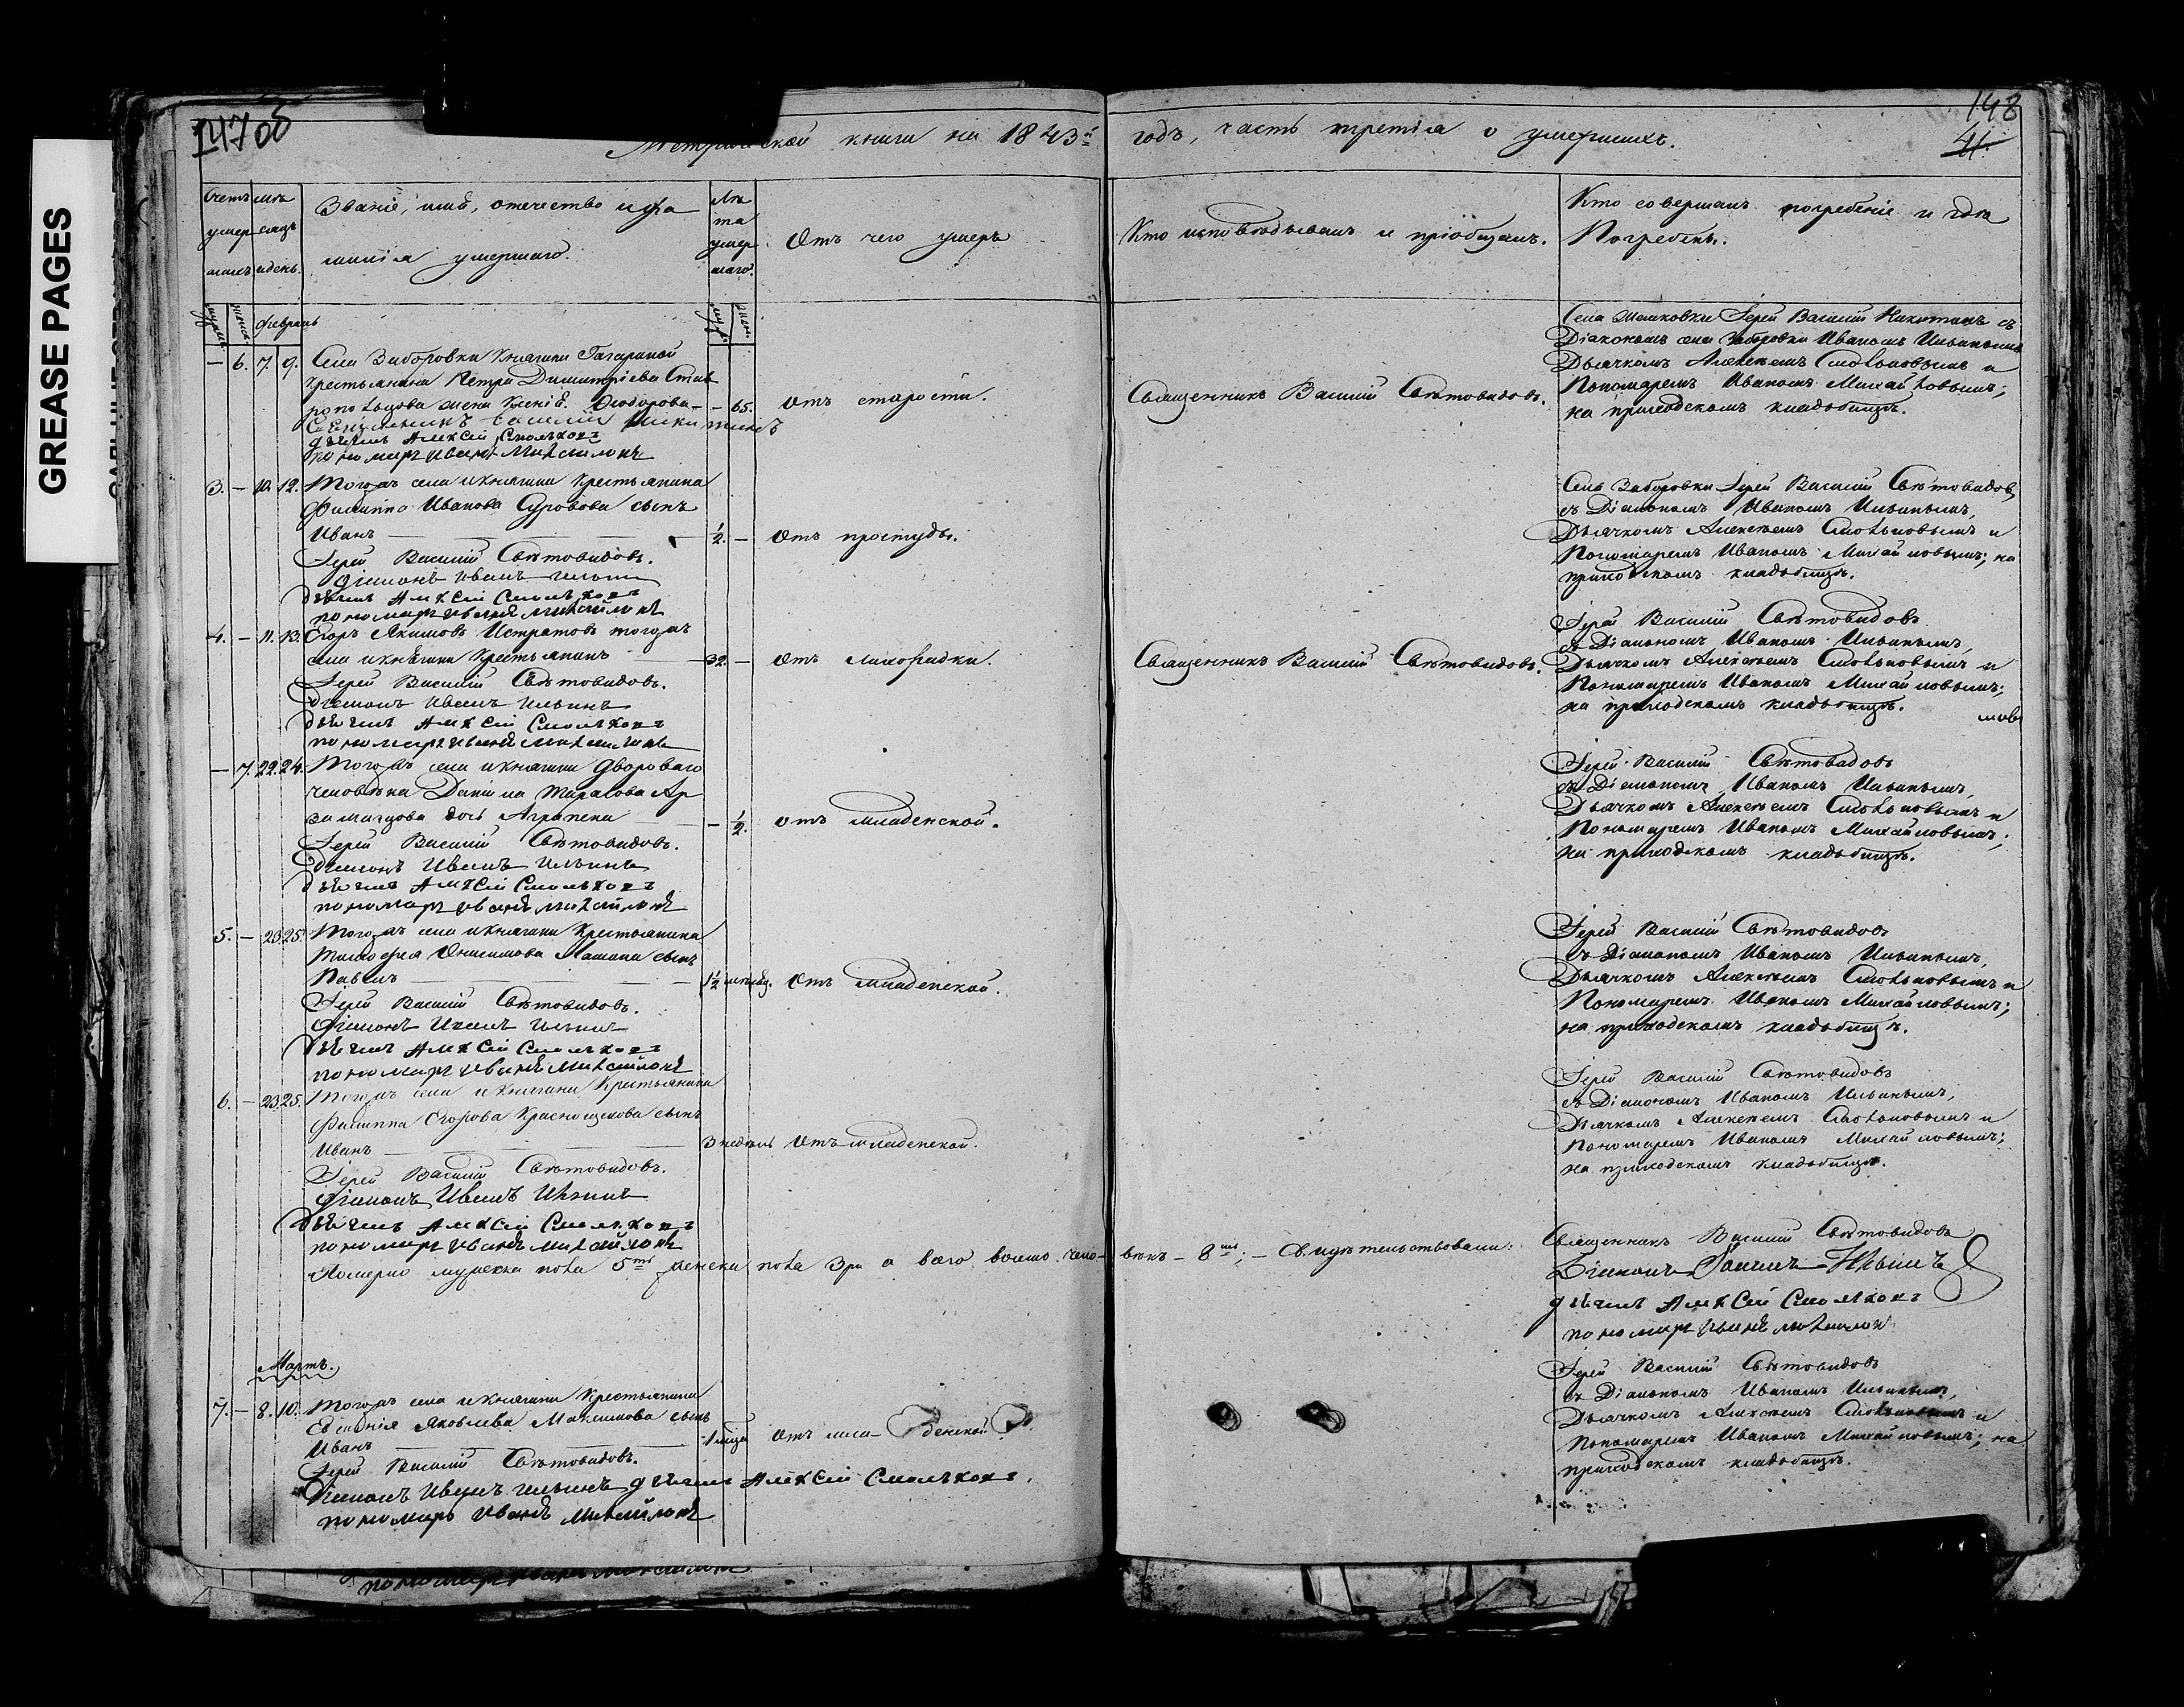 GREASE PAGES
147об
148
41.
Метрической книги на 1843й годъ, часть третiя о умершихъ.
Счетъ умершихъ
мѣсяцъ и день.
Званiе, имѣ, отечество и фа
милiя умершаго.
Лѣ
та
умер
шаго.
Отъ чего умеръ
Кто исповѣдывалъ и прiобщалъ.
Кто совершалъ погребенiе и гдѣ
Погребенъ.
мужеска
женска
Февраль
муж.
жен.
— 6. 7. 9. Села Заборовки Княгини Гагариной
крестьянина Петра Димитрiева Став
ропольцова жена Ксенiѣ Ѳеодорова — — 65. отъ старости.
Священникъ Василiй Никитинъ
дьячекъ Алексѣй Смольковъ
пономарь Иванъ Михайловъ
Священникъ Василiй Свѣтовидовъ.
Села Машковки Iерей Василiй Никитинъ съ
Дiакономъ села Заборовки Иваномъ Ильинымъ
Дьячкомъ Алексѣемъ Смольковымъ и
Пономаремъ Иваномъ Михайловымъ;
на приходскомъ кладбищѣ.
3. — 10. 12. Тогожъ села и княгини Крестьянина
Филиппа Иванова Суровова сынъ
Иванъ 1/2. — отъ простуды.
Iерей Василiй Свѣтовидовъ.
дiаконъ Иванъ Ильинъ
дьячекъ Алексѣй Смольковъ
пономарь Иванъ Михайловъ
Села Заборовки Iерей Василiй Свѣтовидовъ,
съ Дiакономъ Иваномъ Ильинымъ,
Дьячкомъ Алексѣемъ Смольковымъ и
Пономаремъ Иваномъ Михайловымъ; на
приходскомъ кладбищѣ.
4. — 11. 13. Егоръ Якимовъ Истратовъ тогожъ
села и княгини Крестьянинъ — 32. — отъ лихорадки.
Iерей Василiй Свѣтовидовъ.
дiаконъ Иванъ Ильинъ
дьячекъ Алексѣй Смольковъ
пономарь Иванъ Михайловъ
Священникъ Василiй Свѣтовидовъ.
Iерей Василiй Свѣтовидовъ
съ Дiакономъ Иваномъ Ильинымъ,
Дьячкомъ Алексѣемъ Смольковымъ и
Пономаремъ Иваномъ Михайловымъ;
на приходскомъ кладбищѣ.
— 7. 22. 24. Тогожъ села и княгини дворового
человѣка Данила Тарасова Ар
замасцова дочь Аграпена — 1/2. отъ младенской.
Iерей Василiй Свѣтовидовъ.
дiаконъ Иванъ Ильинъ
дьячекъ Алексѣй Смольковъ
пономарь Иванъ Михайловъ
Iерей Василiй Свѣтовидовъ
съ Дiакономъ Иваномъ Ильинымъ,
Дьячкомъ Алексѣемъ Смольковымъ и
Пономаремъ Иваномъ Михайловымъ;
на приходскомъ кладбищѣ.
5. — 23. 25. Тогожъ села и княгини Крестьянина
Тимофея Онисимова сынъ
Павелъ 1 1/2 отъ младенской.
Iерей Василiй Свѣтовидовъ.
дiаконъ Иванъ Ильинъ
дьячекъ Алексѣй Смольковъ
пономарь Иванъ Михайловъ
Iерей Василiй Свѣтовидовъ
съ Дiакономъ Иваномъ Ильинымъ,
Дьячкомъ Алексѣемъ Смольковымъ и
Пономаремъ Иваномъ Михайловымъ;
на приходскомъ кладбищѣ.
6. — 23. 25. Тогожъ села и княгини Крестьянина
Филиппа Егорова Краснощекова сынъ
Иванъ 3 недѣль отъ младенской.
Iерей Василiй Свѣтовидовъ.
дiаконъ Иванъ Ильинъ
дьячекъ Алексѣй Смольковъ
пономарь Иванъ Михайловъ
Iерей Василiй Свѣтовидовъ
съ Дiакономъ Иваномъ Ильинымъ,
Дьячкомъ Алексѣемъ Смольковымъ и
Пономаремъ Иваномъ Михайловымъ;
на приходскомъ кладбищѣ.
Померло мужеска пола 5ть женска пола 3ри а всего восемь чело- вѣкъ — 8мь; — Свидѣтельствовали:
Священникъ Василiй Свѣтовидовъ
Дiаконъ Иоаннъ Ильинъ
дьячекъ Алексѣй Смольковъ
пономарь Иванъ Михайловъ
Мартъ.
7. — 8. 10. Тогожъ села и княгини Крестьянина
Евсигнiя Яковлева Максимова сынъ
Иванъ отъ мла- денской.
Iерей Василiй Свѣтовидовъ.
дiаконъ Иванъ Ильинъ дьячекъ Алексѣй Смольковъ.
пономарь Иванъ Михайловъ
Iерей Василiй Свѣтовидовъ
съ Дiакономъ Иваномъ Ильинымъ,
Дьячкомъ Алексѣемъ Смольковымъ и
Пономаремъ Иваномъ Михайловымъ; на
приходскомъ кладбищѣ.
пономарь Иванъ Михайловъ